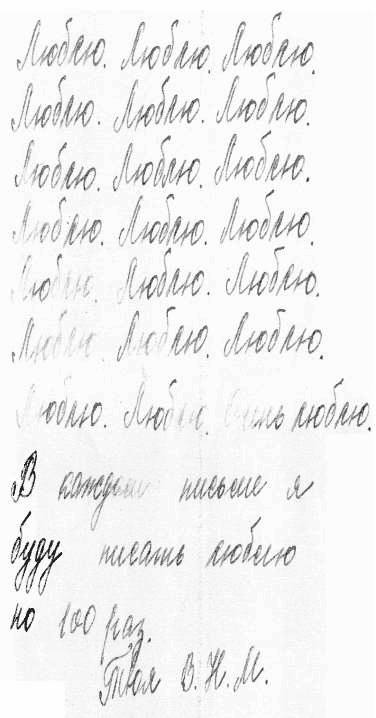 Люблю. Люблю. Люблю.
Люблю. Люблю. Люблю.
Люблю. Люблю. Люблю.
Люблю. Люблю. Люблю.
Люблю. Люблю. Люблю.
Люблю. Люблю. Люблю.
Люблю. Люблю. Очень люблю.
В каждом письме я
буду писать люблю
по 100 раз.
Твоя В. Н. М.